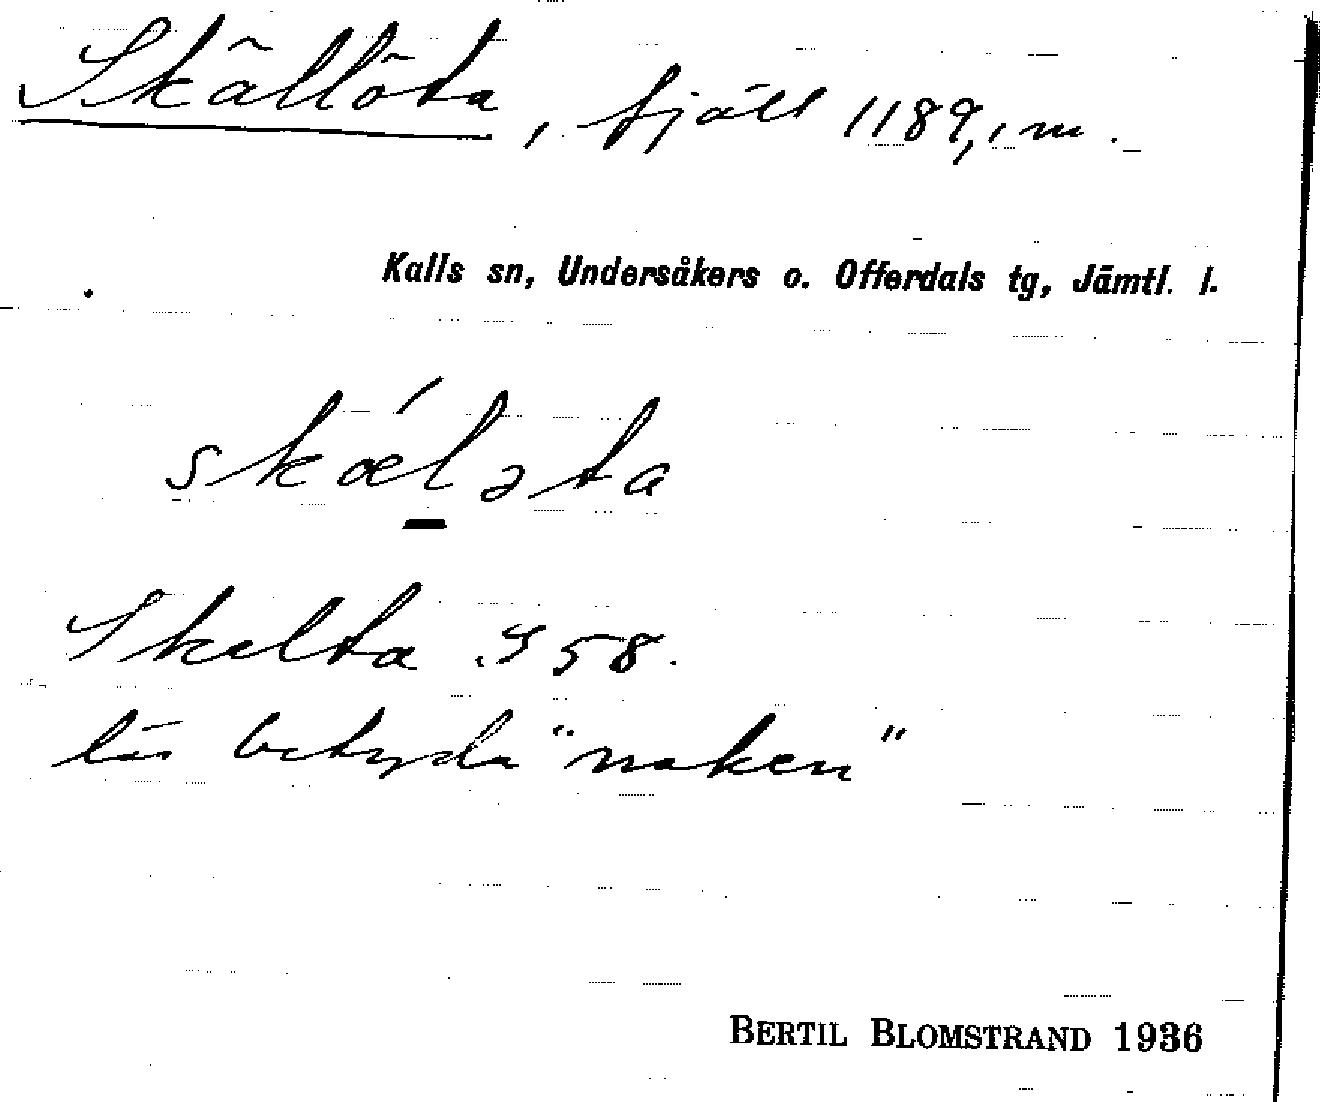 Skällöta, fjäll 1189,1 m.
Kalls sn, Undersåkers o. Offerdals tg, Jämtl. l.
skǽləta
Skelta S 58.
lär betyda "naken"
BERTIL BLOMSTRAND 1936